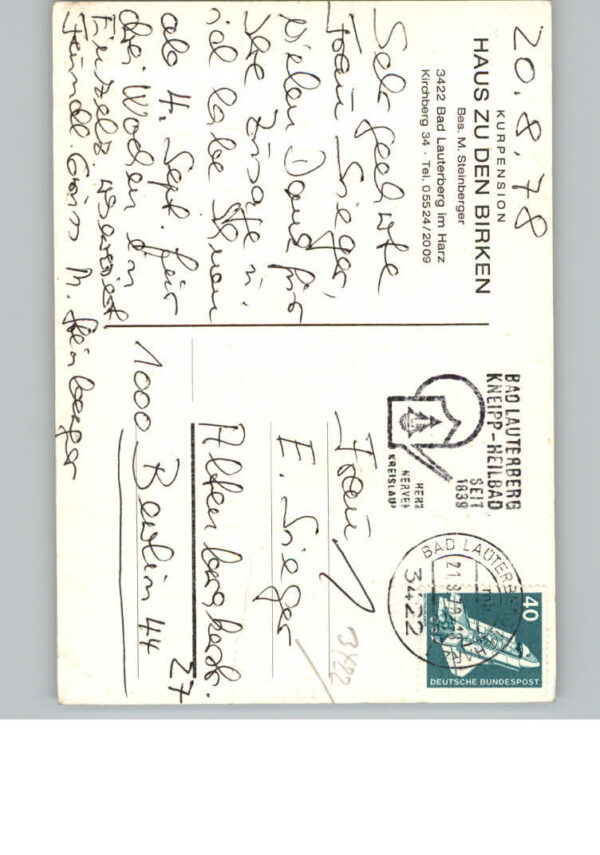 20.8.78
KURPENSION
HAUS ZU DEN BIRKEN
Bes. M. Steinberger
3422 Bad Lauterberg im Harz
Kirchberg 34 · Tel. 05524/2009
Sehr geehrte
Frau Sieger,
vielen Dank für
Ihre Zusage u.
ich habe Ihnen
ab 4. Sept. für
drei Wochen ein
Einzelz. reserviert
Freundl. Gruss M. Steinberger
BAD LAUTERBERG
KNEIPP-HEILBAD
SEIT
1839
HERZ
NERVEN
KREISLAUF
BAD LAUTERBERG
3422
40
DEUTSCHE BUNDESPOST
Frau
E. Sieger
3422
27
1000 Berlin 44